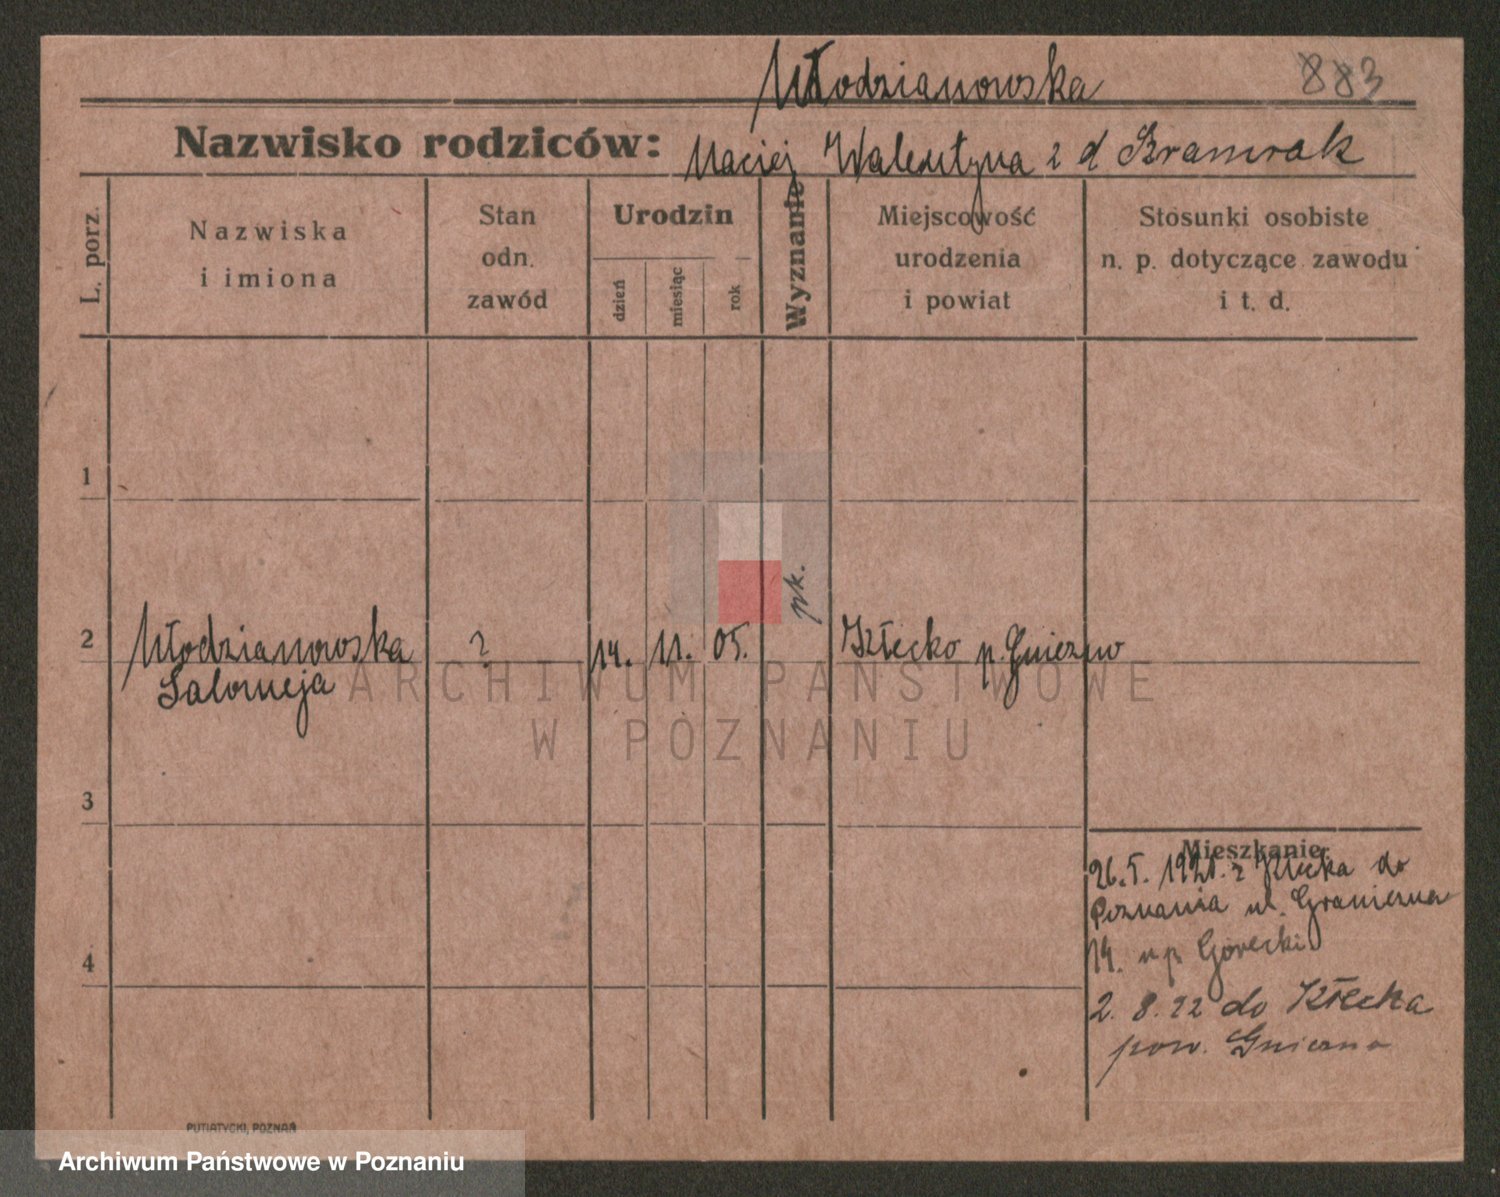 Młodzianowska 883
Nazwisko rodziców: Maciej Walentyna z d
L. porz.
Nazwiska
i imiona
Stan
odn.
zawód
Urodzin
dzień
miesiąc
rok
Wyznanie
Miejscowość
urodzenia
i powiat
Stosunki osobiste
n. p. dotyczące zawodu
i t. d.
1
2 Młodzianowska ? 14. 11. 05. rk. Kłecko p. Gniezno
Salomeja
ARCHIWUM PAŃSTWOWE
W POZNANIU
3
Mieszkanie
26. 5. z Kłecka do
Poznania ul. Graniczna
14. u p. Górecki
4
2. 8. 22 do Kłecka
pow. Gniezno
PUTIATYCKI, POZNAŃ
Archiwum Państwowe w Poznaniu